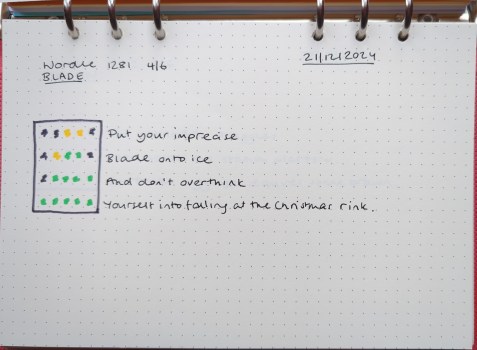 Wordle 1281 4/6
21/12/2024
BLADE
Put your imprecise
Blade onto ice
And don't overthink
Yourself into falling at the Christmas rink.